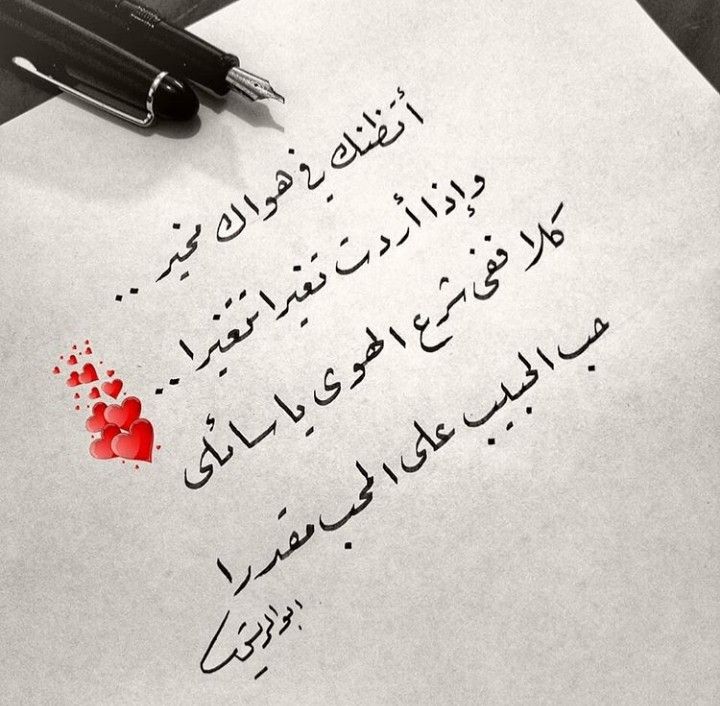 أتظنك في هواك مخير ..
وإذا أردت تغيرا تتغيرا ..
كلا ففي شرع الهوى يا سائلي
حب الحبيب على المحب مقدرا